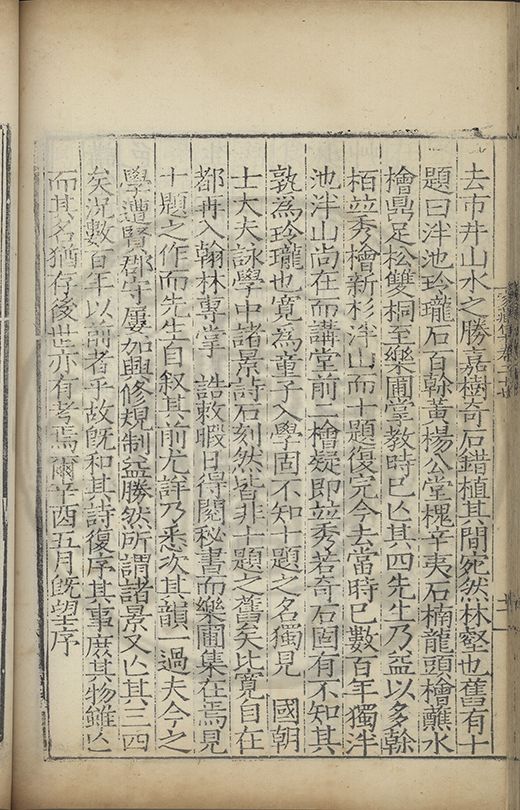 去市井山水之勝嘉樹奇石錯植其間宛然林壑也舊有十
題曰泮池玲瓏石百榦黃楊公堂槐辛夷石楠龍頭檜蘸水
檜鼎足松雙桐至樂圃掌教時已亾其四先生乃益以多榦
栢竝秀檜新杉泮山而十題復完今去當時已數百年獨泮
池泮山尚在而講堂前二檜疑即竝秀若奇石固有不知其
孰為玲瓏也寬為童子入學固不知十題之名獨見 國朝
士大夫詠學中諸景詩石刻然皆非十題之舊矣比寬自在
都再入翰林專掌 誥敕暇日得閱秘書而樂圃集在焉見
十題之作而先生自叙其前尤詳乃悉次其韻一過夫今之
學遭賢郡守屢加興修規制益勝然所謂諸景又亾其三四
矣況數百年以前者乎故旣和其詩復序其事庻其物雖亾
而其名猶存後世亦有考焉爾辛酉五月旣望序